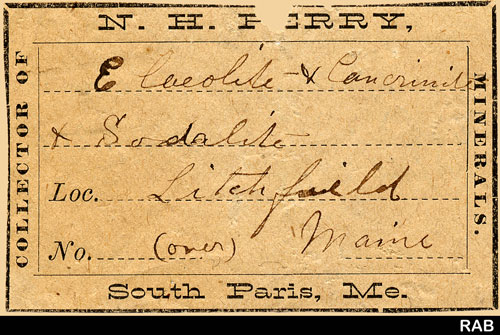 N. H. PERRY,
COLLECTOR OF
Elaeolite & Cancrinite
& Sodalite
Loc. Litchfield
No. (over) Maine
MINERALS.
South Paris, Me.
RAB